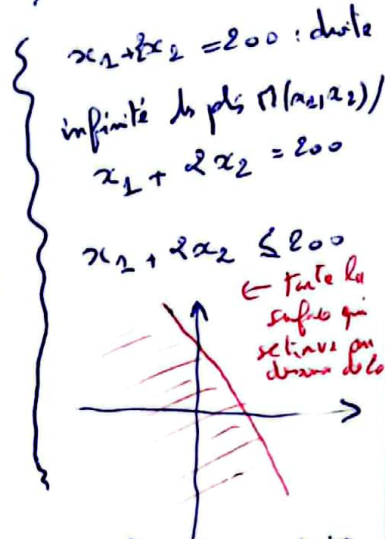 x₁+2x₂ = 200 : droite
infinité de pts M(x₁,x₂)/
x₁ + 2x₂ = 200
x₁ + 2x₂ ≤ 200
← toute la
surface qui
se trouve au
dessous de la